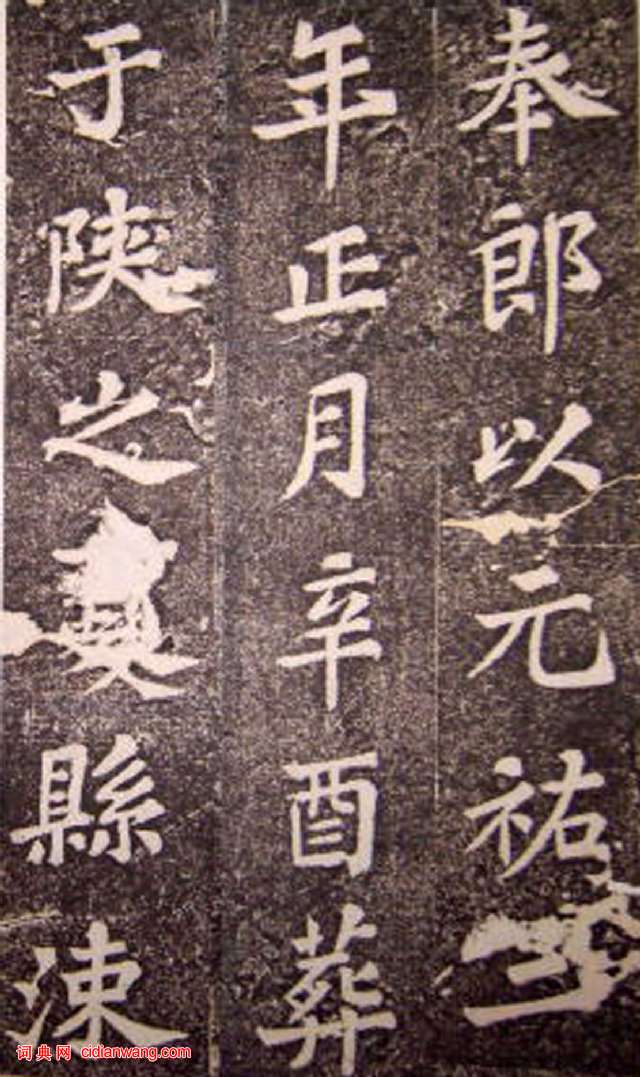 奉郎以元祐三
年正月辛酉葬
于陝之夏縣涑
词典网 cidianwang.com